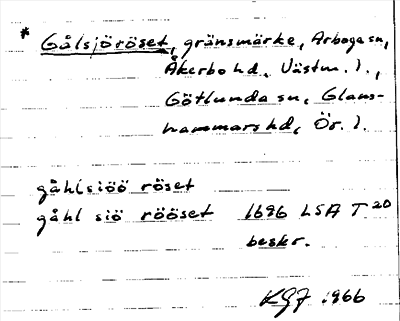 * Gålsjöröset, gränsmärke, Arboga sn,
Åkerbo hd, Västm. l.,
Götlunda sn, Glans-
hammars hd, Ör. l.
gåhlsiöö röset
gåhl siö rööset 1696 LSA T 20
beskr.
KGF 1966